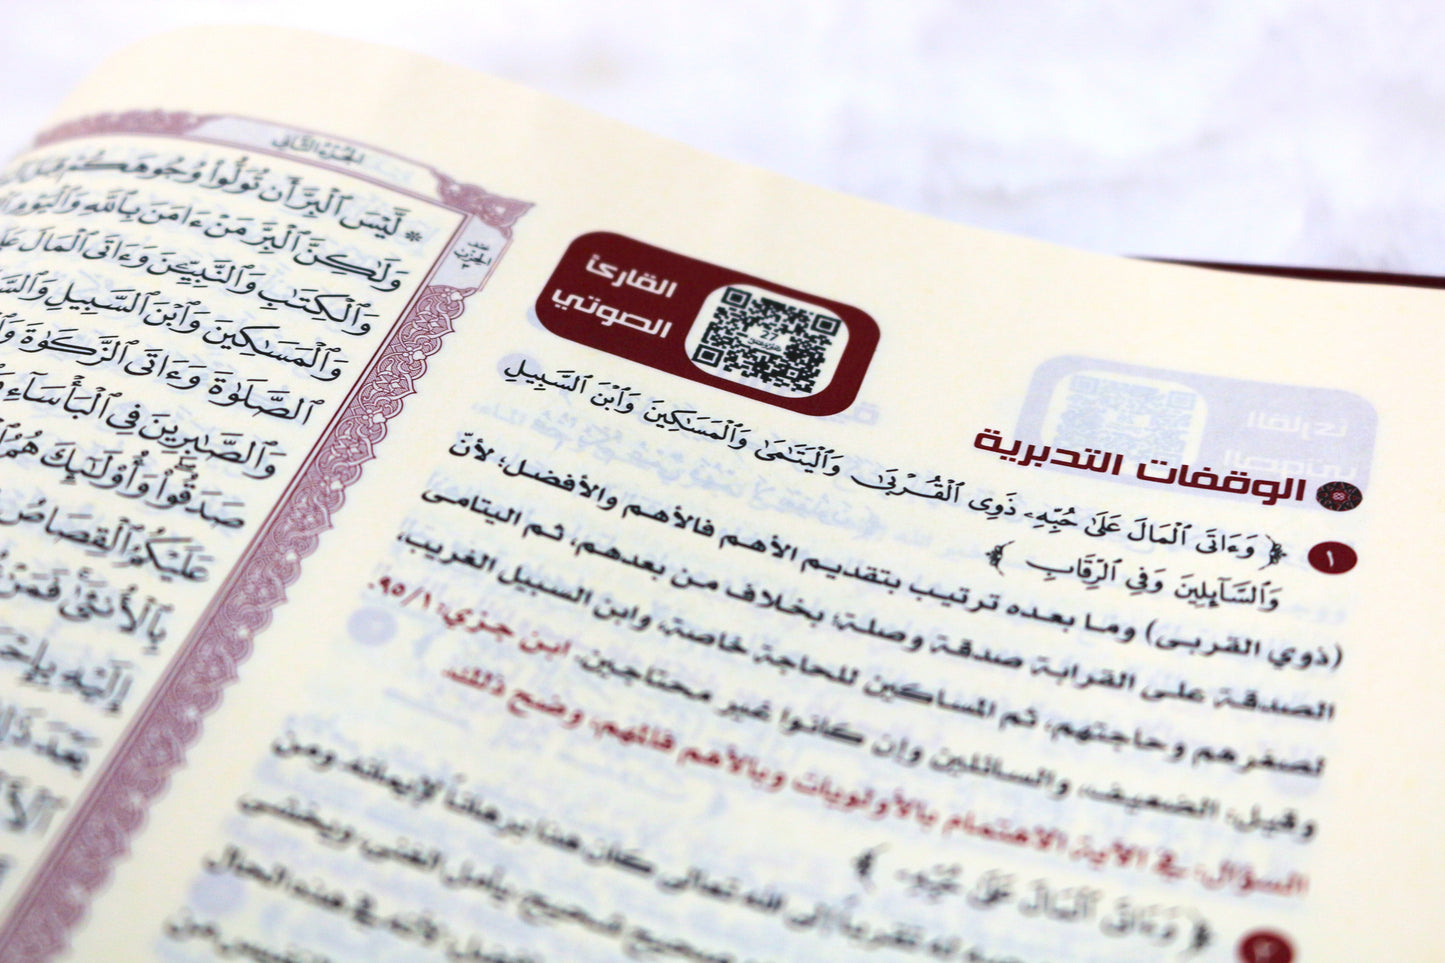 الجزء الثاني
* لَّيْسَ ٱلْبِرَّ أَن تُوَلُّوا۟ وُجُوهَكُمْ قِبَلَ
وَلَٰكِنَّ ٱلْبِرَّ مَنْ ءَامَنَ بِٱللَّهِ وَٱلْيَوْمِ
وَٱلْكِتَٰبِ وَٱلنَّبِيِّـۧنَ وَءَاتَى ٱلْمَالَ عَلَىٰ
وَٱلْمَسَٰكِينَ وَٱبْنَ ٱلسَّبِيلِ
ٱلصَّلَوٰةَ وَءَاتَى ٱلزَّكَوٰةَ
وَٱلصَّٰبِرِينَ فِى ٱلْبَأْسَآءِ
صَدَقُوا۟ وَأُو۟لَٰٓئِكَ هُمُ
عَلَيْكُمُ ٱلْقِصَاصُ
بِٱلْأُنثَىٰ فَمَنْ
إِلَيْهِ بِإِحْ
بَعْدَ ذَٰلِكَ
نصف الحزب ٣
القارئ
الصوتي
27
الوقفات التدبرية
١ ﴿ وَءَاتَى ٱلْمَالَ عَلَىٰ حُبِّهِۦ ذَوِى ٱلْقُرْبَىٰ وَٱلْيَتَٰمَىٰ وَٱلْمَسَٰكِينَ وَٱبْنَ ٱلسَّبِيلِ
وَٱلسَّآئِلِينَ وَفِى ٱلرِّقَابِ ﴾
(ذوي القربى) وما بعده ترتيب بتقديم الأهم فالأهم والأفضل؛ لأنّ
الصدقة على القرابة صدقة وصلة؛ بخلاف من بعدهم، ثم اليتامى
لصغرهم وحاجتهم، ثم المساكين للحاجة خاصة، وابن السبيل الغريب،
وقيل: الضعيف، والسائلين وإن كانوا غير محتاجين. ابن جزي: ٩٥/١.
السؤال: في الآية الاهتمام بالأولويات وبالأهم فالمهم، وضح ذلك.
٢ ﴿ وَءَاتَى ٱلْمَالَ عَلَىٰ حُبِّهِۦ ﴾
تقرباً إلى الله تعالى كان هذا برهاناً لإيمانه، ومن
صحيح شحيح، يأمل الغنى، ويخشى
لأنه في هذه الحال